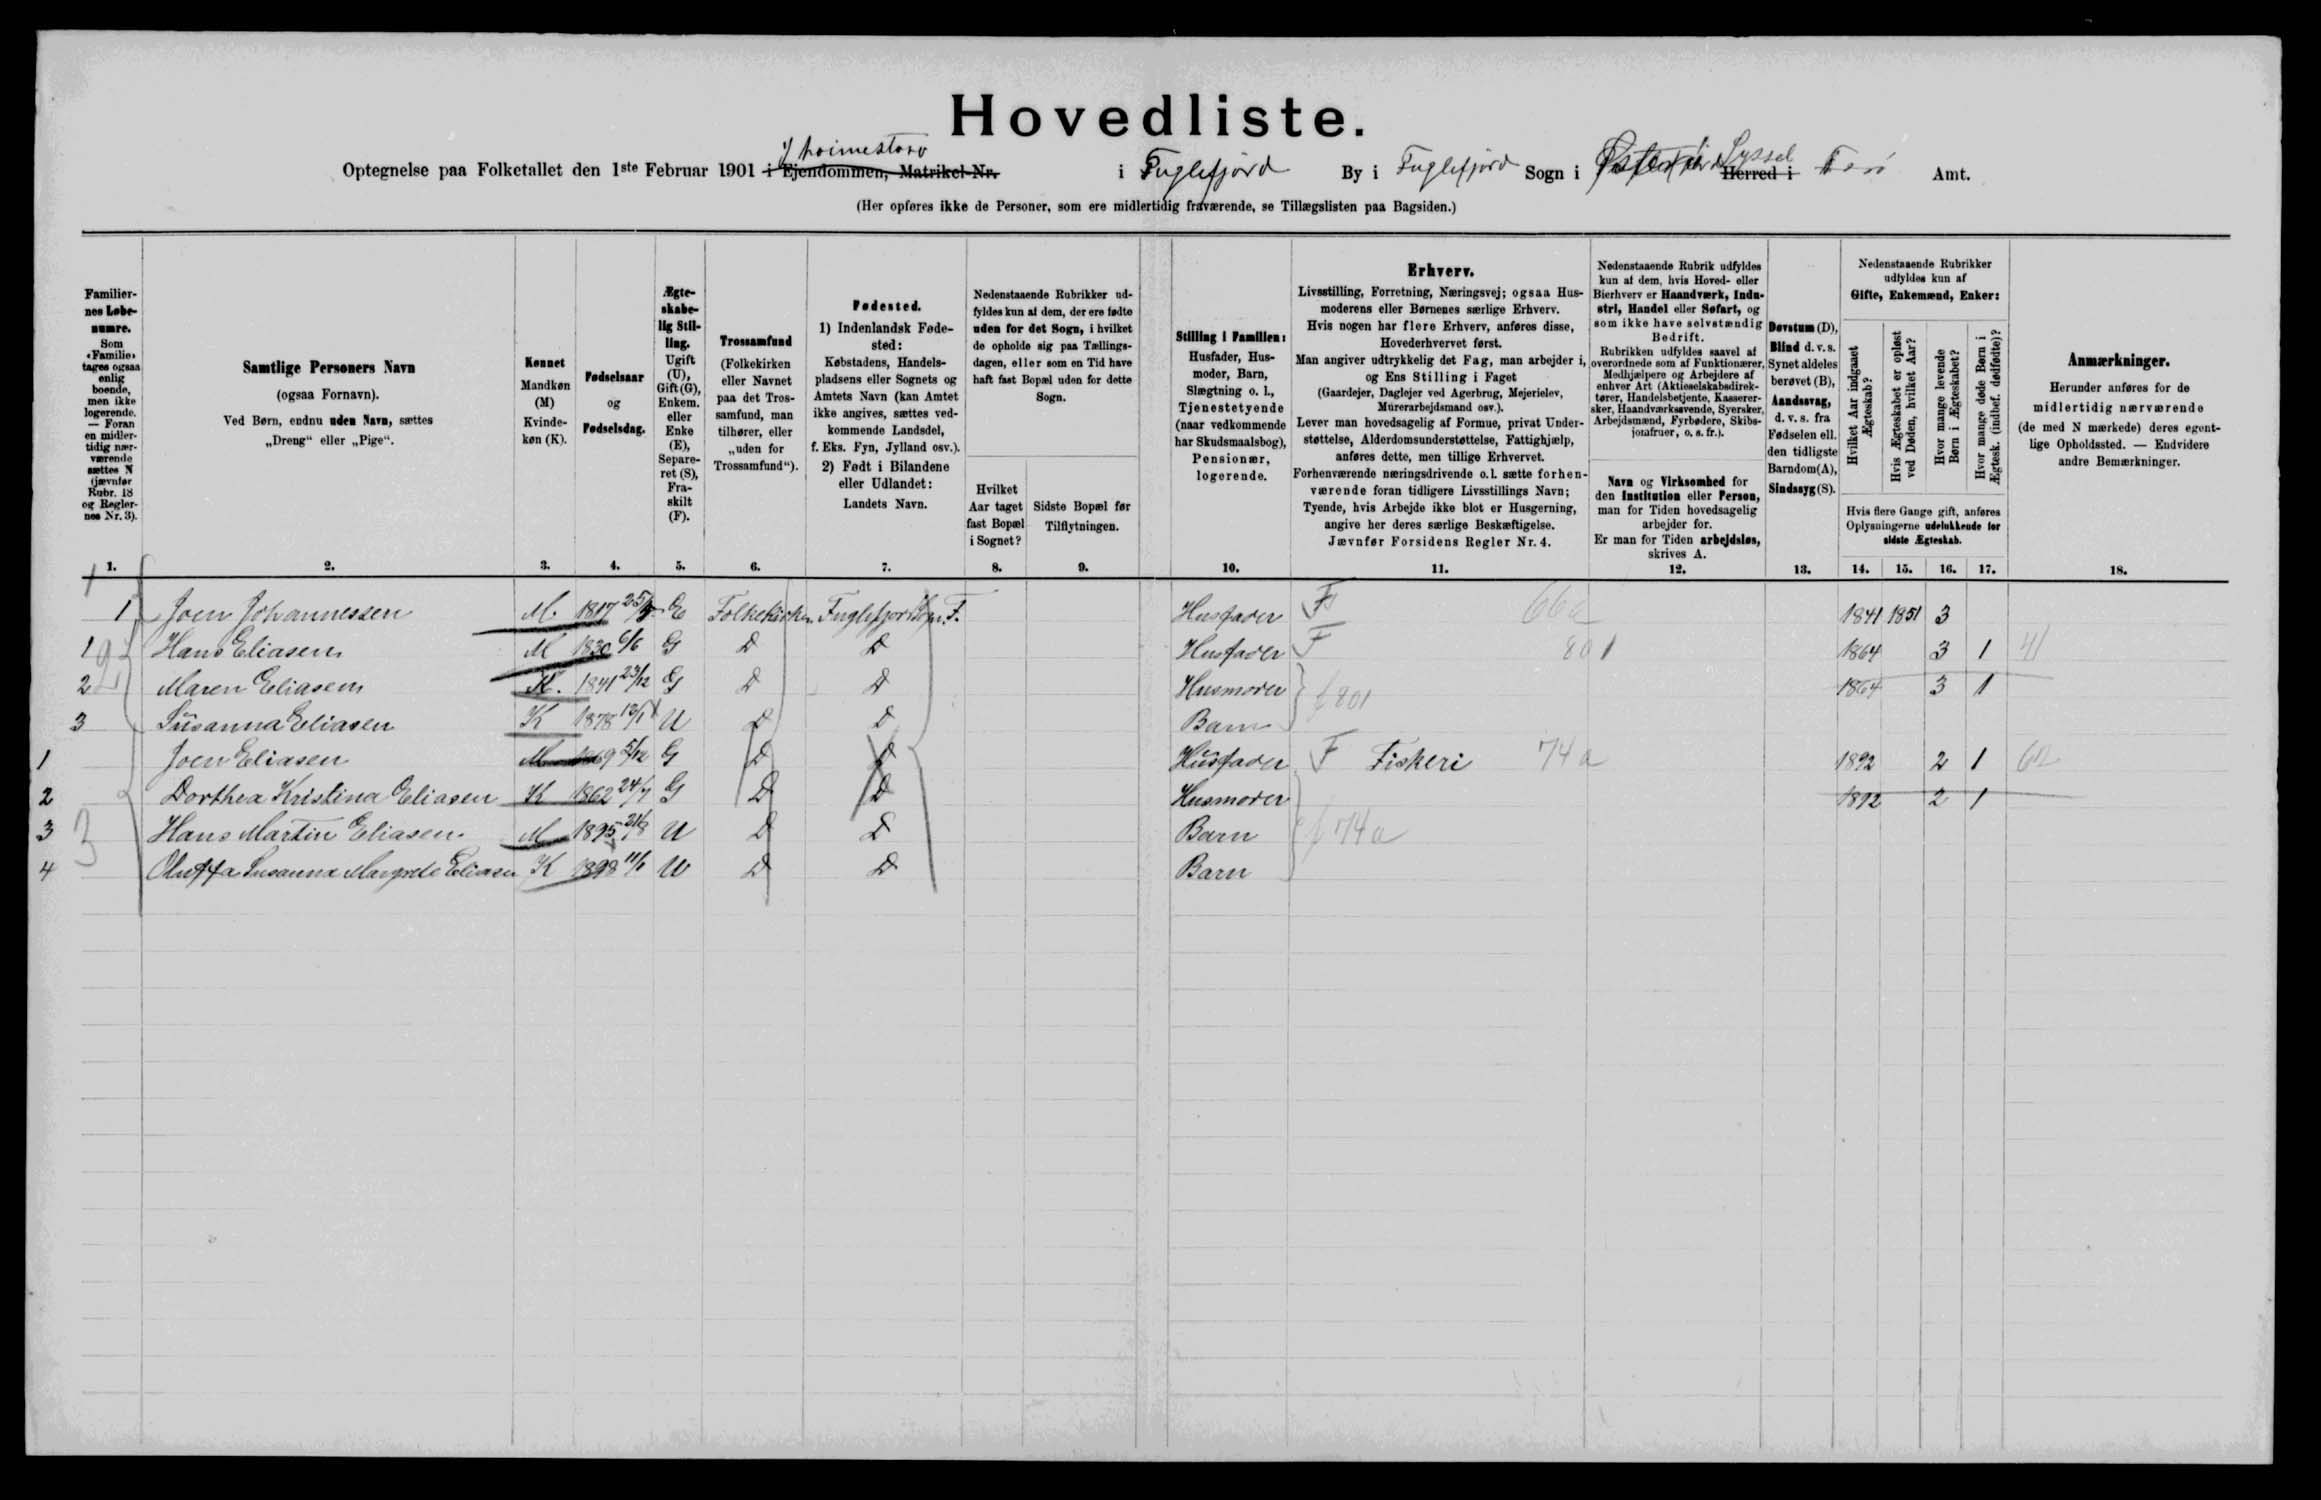 Hovedliste.
Optegnelse paa Folketallet den 1ste Februar 1901 i Ejendommen, Matrikel-Nr. i Fuglefjord By i Fuglefjord Sogn i Østerø Syssel Herred i Færø Amt.
(Her opføres ikke de Personer, som ere midlertidig fraværende, se Tillægslisten paa Bagsiden.)
Familiernes Løbenumre.
Som «Familie» tages ogsaa enlig boende, men ikke logerende. — Foran en midlertidig nærværende sættes N (jævnfør Rubr. 18 og Reglernes Nr. 3).
Samtlige Personers Navn
(ogsaa Fornavn).
Ved Børn, endnu uden Navn, sættes „Dreng“ eller „Pige“.
Kønnet
Mandkøn (M)
Kvindekøn (K).
Fødselsaar og Fødselsdag.
Ægteskabelig Stilling.
Ugift (U), Gift (G), Enkem. eller Enke (E), Separeret (S), Fraskilt (F).
Trossamfund
(Folkekirken eller Navnet paa det Trossamfund, man tilhører, eller „uden for Trossamfund“).
Fødested.
1) Indenlandsk Fødested:
Købstadens, Handelspladsens eller Sognets og Amtets Navn (kan Amtet ikke angives, sættes vedkommende Landsdel, f. Eks. Fyn, Jylland osv.).
2) Født i Bilandene eller Udlandet:
Landets Navn.
Nedenstaaende Rubrikker udfyldes kun af dem, der ere fødte uden for det Sogn, i hvilket de opholde sig paa Tællingsdagen, eller som en Tid have haft fast Bopæl uden for dette Sogn.
Hvilket Aar taget fast Bopæl i Sognet?
Sidste Bopæl før Tilflytningen.
Stilling i Familien:
Husfader, Husmoder, Barn, Slægtning o. l., Tjenestetyende (naar vedkommende har Skudsmaalsbog), Pensionær, logerende.
Erhverv.
Livsstilling, Forretning, Næringsvej; ogsaa Husmoderens eller Børnenes særlige Erhverv.
Hvis nogen har flere Erhverv, anføres disse, Hovederhvervet først.
Man angiver udtrykkelig det Fag, man arbejder i, og Ens Stilling i Faget
(Gaardejer, Daglejer ved Agerbrug, Mejerielev, Murerarbejdsmand osv.).
Lever man hovedsagelig af Formue, privat Understøttelse, Alderdomsunderstøttelse, Fattighjælp, anføres dette, men tillige Erhvervet.
Forhenværende næringsdrivende o. l. sætte forhenværende foran tidligere Livsstillings Navn; Tyende, hvis Arbejde ikke blot er Husgerning, angive her deres særlige Beskæftigelse.
Jævnfør Forsidens Regler Nr. 4.
Nedenstaaende Rubrik udfyldes kun af dem, hvis Hoved- eller Bierhverv er Haandværk, Industri, Handel eller Søfart, og som ikke have selvstændig Bedrift.
Rubrikken udfyldes saavel af overordnede som af Funktionærer, Medhjælpere og Arbejdere af enhver Art (Aktieselskabsdirektører, Handelsbetjente, Kasserersker, Haandværksvende, Syersker, Arbejdsmænd, Fyrbødere, Skibsjomfruer, o. s. fr.).
Navn og Virksomhed for den Institution eller Person, man for Tiden hovedsagelig arbejder for.
Er man for Tiden arbejdsløs, skrives A.
Døvstum (D), Blind d. v. s. Synet aldeles berøvet (B), Aandssvag, d. v. s. fra Fødselen ell. den tidligste Barndom (A), Sindssyg (S).
Nedenstaaende Rubrikker udfyldes kun af Gifte, Enkemænd, Enker:
Hvilket Aar indgaaet Ægteskab?
Hvis Ægteskabet er opløst ved Døden, hvilket Aar?
Hvor mange levende Børn i Ægteskabet?
Hvor mange døde Børn i Ægtesk. (indbef. dødfødte)?
Hvis flere Gange gift, anføres Oplysningerne udelukkende for sidste Ægteskab.
Anmærkninger.
Herunder anføres for de midlertidig nærværende (de med N mærkede) deres egentlige Opholdssted. — Endvidere andre Bemærkninger.
1. 2. 3. 4. 5. 6. 7. 8. 9. 10. 11. 12. 13. 14. 15. 16. 17. 18.
1 Joen Johannessen M. 1817 E Folkekirken Fuglefjord Sogn. F. Husfader F 66a 1841 1851 3
1 Hans Eliasen M 1830 6/6 G D D Husfader F 801 1864 3 1 41
2 Maren Eliasen K. 1841 23/12 G D D Husmoder f 801 1864 3 1
3 Susanna Eliasen K 1878 U D D Barn
1 Joen Eliasen M 1869 5/12 G D D Husfader F Fiskeri 74a 1892 2 1 62
2 Dorthea Kristina Eliasen K 1862 24/7 G D D Husmoder 1892 2 1
3 Hans Martin Eliasen. M 1895 21/8 U D D Barn f 74a
4 Oluffa Susanna Margrete Eliasen K 1898 11/1 U D D Barn